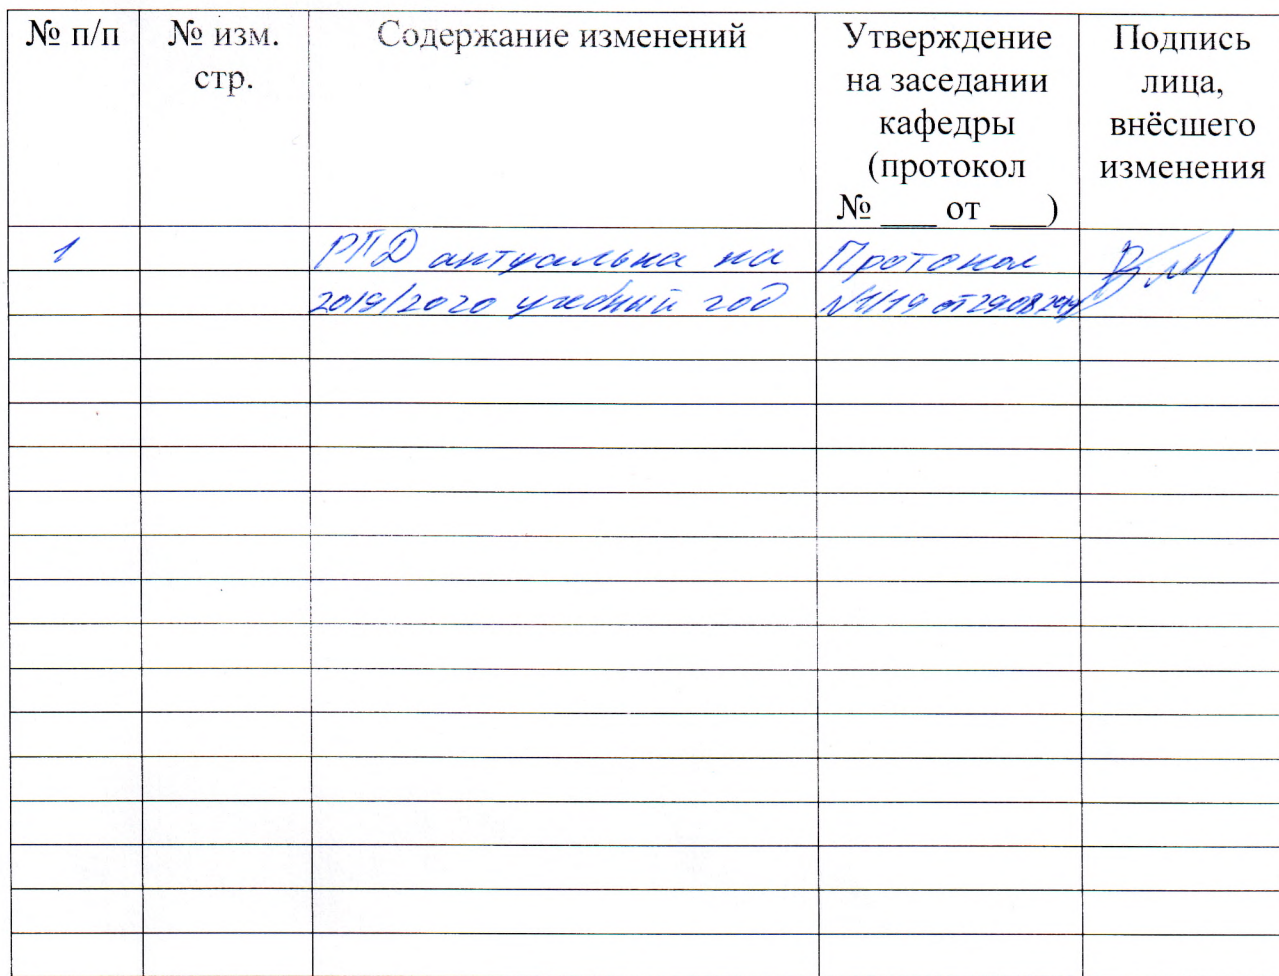 № п/п № изм. стр. Содержание изменений Утверждение на заседании кафедры (протокол № ___ от ___) Подпись лица, внёсшего изменения
1 РПД актуальна на Протокол
2019/2020 учебный год №1/19 от 29.08.2019